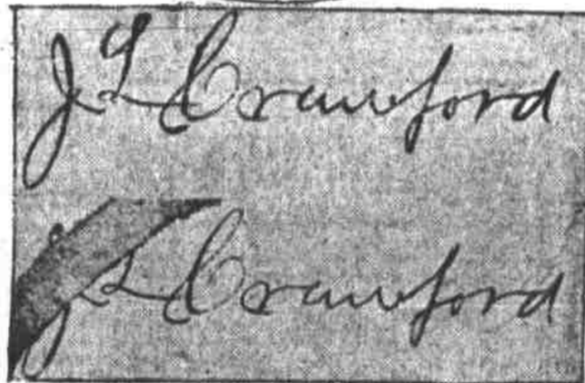 J L Crawford
J L Crawford